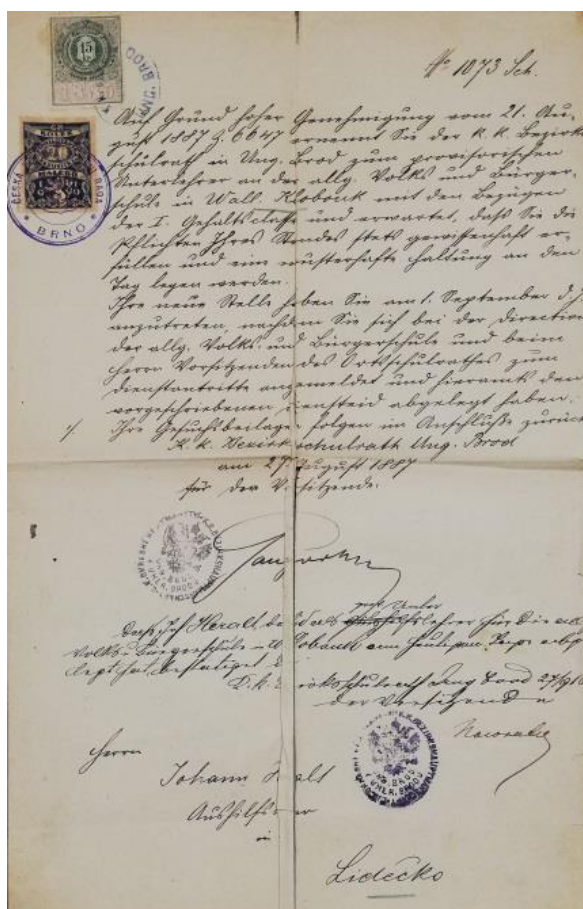 15
BROD
20
ČESKÁ
RADA
BRNO
No 1073 Sch.
Auf Grund hoher Genehmigung vom 21. Au-
gust 1887 Z. 6647 ernennt Sie der k. k. Bezirks
schulrath in Ung. Brod zum provisorischen
Unterlehrer an der allg. Volks und Bürger-
schule in Wall. Klobouk mit den Bezügen
der I. Gehaltsclasse und erwartet, dass Sie die
Pflichten Ihres Standes stets gewissenhaft er-
füllen und eine musterhafte Haltung an den
Tag legen werden.
Ihre neue Stelle haben Sie am 1. September d. J.
anzutreten, nachdem Sie sich bei der Direction
der allg. Volks- und Bürgerschule und beim
Herrn Vorsitzenden des Ortsschulrathes zum
Dienstantritte angemeldet und hieramts den
vorgeschriebenen Diensteid abgelegt haben.
Ihre Gesuchsbeilagen folgen im Anschluße zurück
K. k. Bezirksschulrath Ung. Brod
am 27. August 1887
für den Vorsitzende:
Dass Joh. Heralt als Unter
lehrer für die
Volks- u. Bürgerschule in
hat, bestätiget
K. k. Bezirksschulrath Ung. Brod
der Vorsitzende
Herrn
Johann Heralt
Aushilfslehrer
in
Lidečko